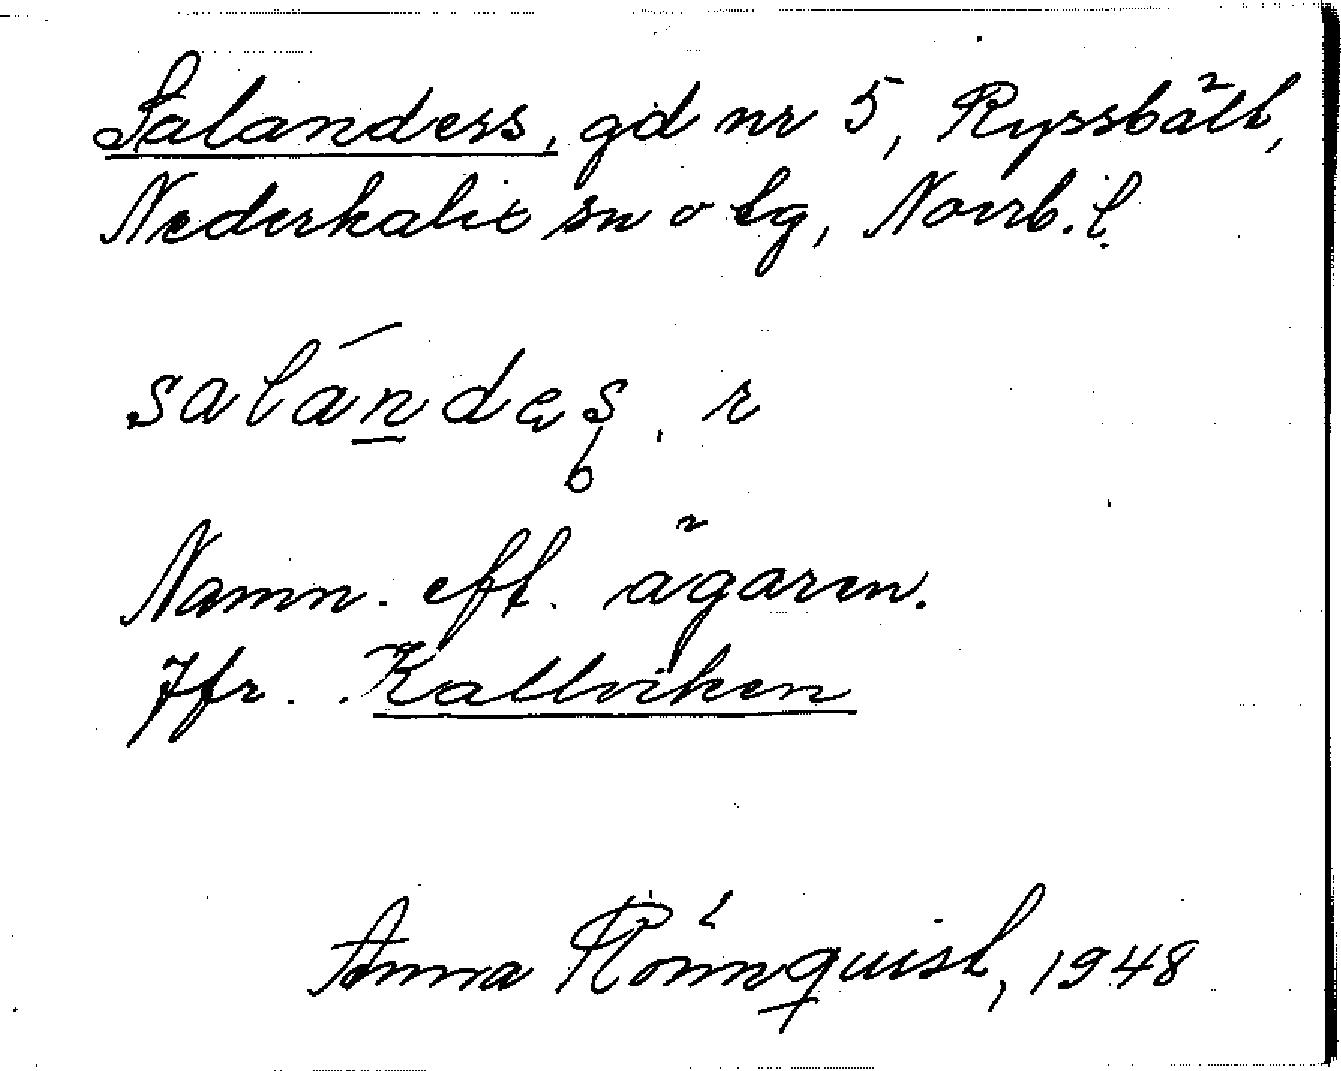 Salanders, gd nr 5, Ryssbält,
Nederkalix sn o tg, Norrb. l.
salándes, r
Namn. eft. ägaren.
Jfr. Kallviken
Anna Rönnquist, 1948